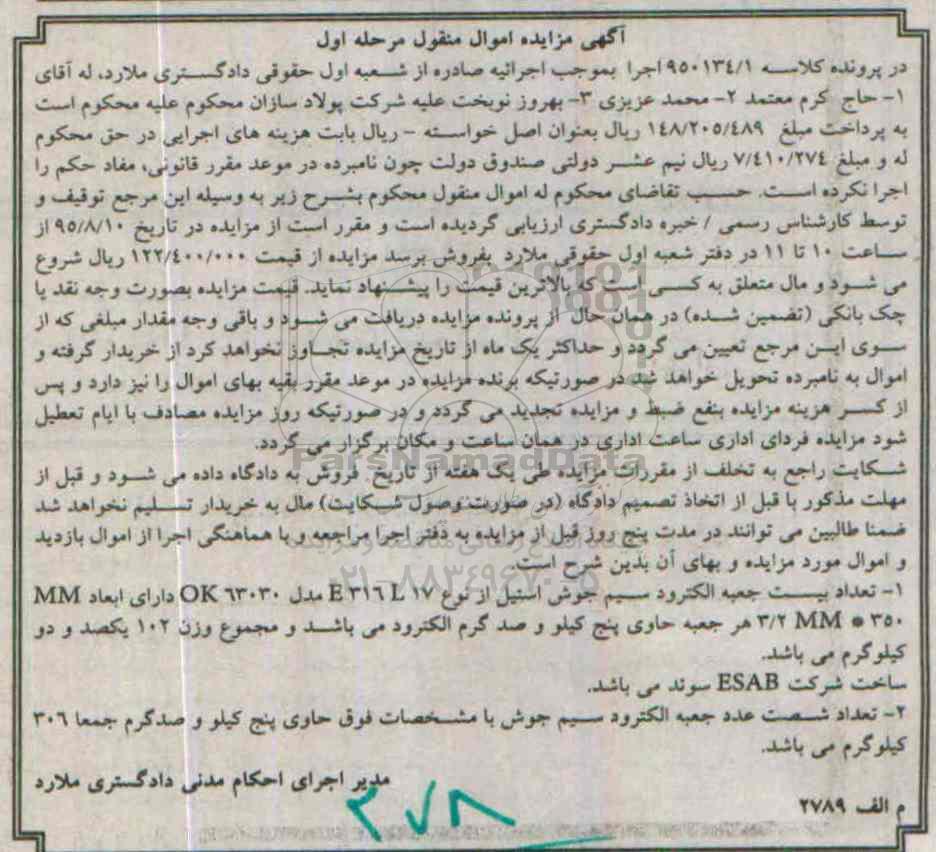 آگهی مزایده اموال منقول مرحله اول
در پرونده کلاسه ۹۵۰۱۳٤/۱ اجرا بموجب اجرائیه صادره از شعبه اول حقوقی دادگستری ملارد، له آقای
۱- حاج کرم معتمد ۲- محمد عزیزی ۳- بهروز نوبخت علیه شرکت پولاد سازان محکوم علیه محکوم است
به پرداخت مبلغ ۱٤۸/۲۰۵/٤۸۹ ریال بعنوان اصل خواسته - ریال بابت هزینه های اجرایی در حق محکوم
له و مبلغ ۷/٤۱۰/۲۷٤ ریال نیم عشر دولتی صندوق دولت چون نامبرده در موعد مقرر قانونی، مفاد حکم را
اجرا نکرده است. حسب تقاضای محکوم له اموال منقول محکوم بشرح زیر به وسیله این مرجع توقیف و
توسط کارشناس رسمی / خبره دادگستری ارزیابی گردیده است و مقرر است از مزایده در تاریخ ۹۵/۸/۱۰ از
ساعت ۱۰ تا ۱۱ در دفتر شعبه اول حقوقی ملارد بفروش برسد مزایده از قیمت ۱۲۲/٤۰۰/۰۰۰ ریال شروع
می شود و مال متعلق به کسی است که بالاترین قیمت را پیشنهاد نماید. قیمت مزایده بصورت وجه نقد یا
چک بانکی (تضمین شده) در همان حال از پرونده مزایده دریافت می شود و باقی وجه مقدار مبلغی که از
سوی این مرجع تعیین می گردد و حداکثر یک ماه از تاریخ مزایده تجاوز نخواهد کرد از خریدار گرفته و
اموال به نامبرده تحویل خواهد شد در صورتیکه برنده مزایده در موعد مقرر بقیه بهای اموال را نیز دارد و پس
از کسر هزینه مزایده بنفع ضبط و مزایده تجدید می گردد و در صورتیکه روز مزایده مصادف با ایام تعطیل
شود مزایده فردای اداری ساعت اداری در همان ساعت و مکان برگزار می گردد.
شکایت راجع به تخلف از مقررات مزایده طی یک هفته از تاریخ. فروش به دادگاه داده می شود و قبل از
مهلت مذکور یا قبل از اتخاذ تصمیم دادگاه (در صورت وصول شکایت) مال به خریدار تسلیم نخواهد شد
ضمنا طالبین می توانند در مدت پنج روز قبل از مزایده به دفتر اجرا مراجعه و با هماهنگی اجرا از اموال بازدید
و اموال مورد مزایده و بهای آن بدین شرح است.
۱- تعداد بیست جعبه الکترود سیم جوش استیل از نوع E ۳۱٦ L ۱۷ مدل OK ٦۳۰۳۰ دارای ابعاد MM
۳۵۰ * MM ۳/۲ هر جعبه حاوی پنج کیلو و صد گرم الکترود می باشد و مجموع وزن ۱۰۲ یکصد و دو
کیلوگرم می باشد.
ساخت شرکت ESAB سوئد می باشد.
۲- تعداد شصت عدد جعبه الکترود سیم جوش با مشخصات فوق حاوی پنج کیلو و صدگرم جمعا ۳۰٦
کیلوگرم می باشد.
مدیر اجرای احکام مدنی دادگستری ملارد
م الف ۲۷۸۹
۲۷۸
ParsNamadData
۰۲۱-۸۸۳٤۹٦۷۰-۵